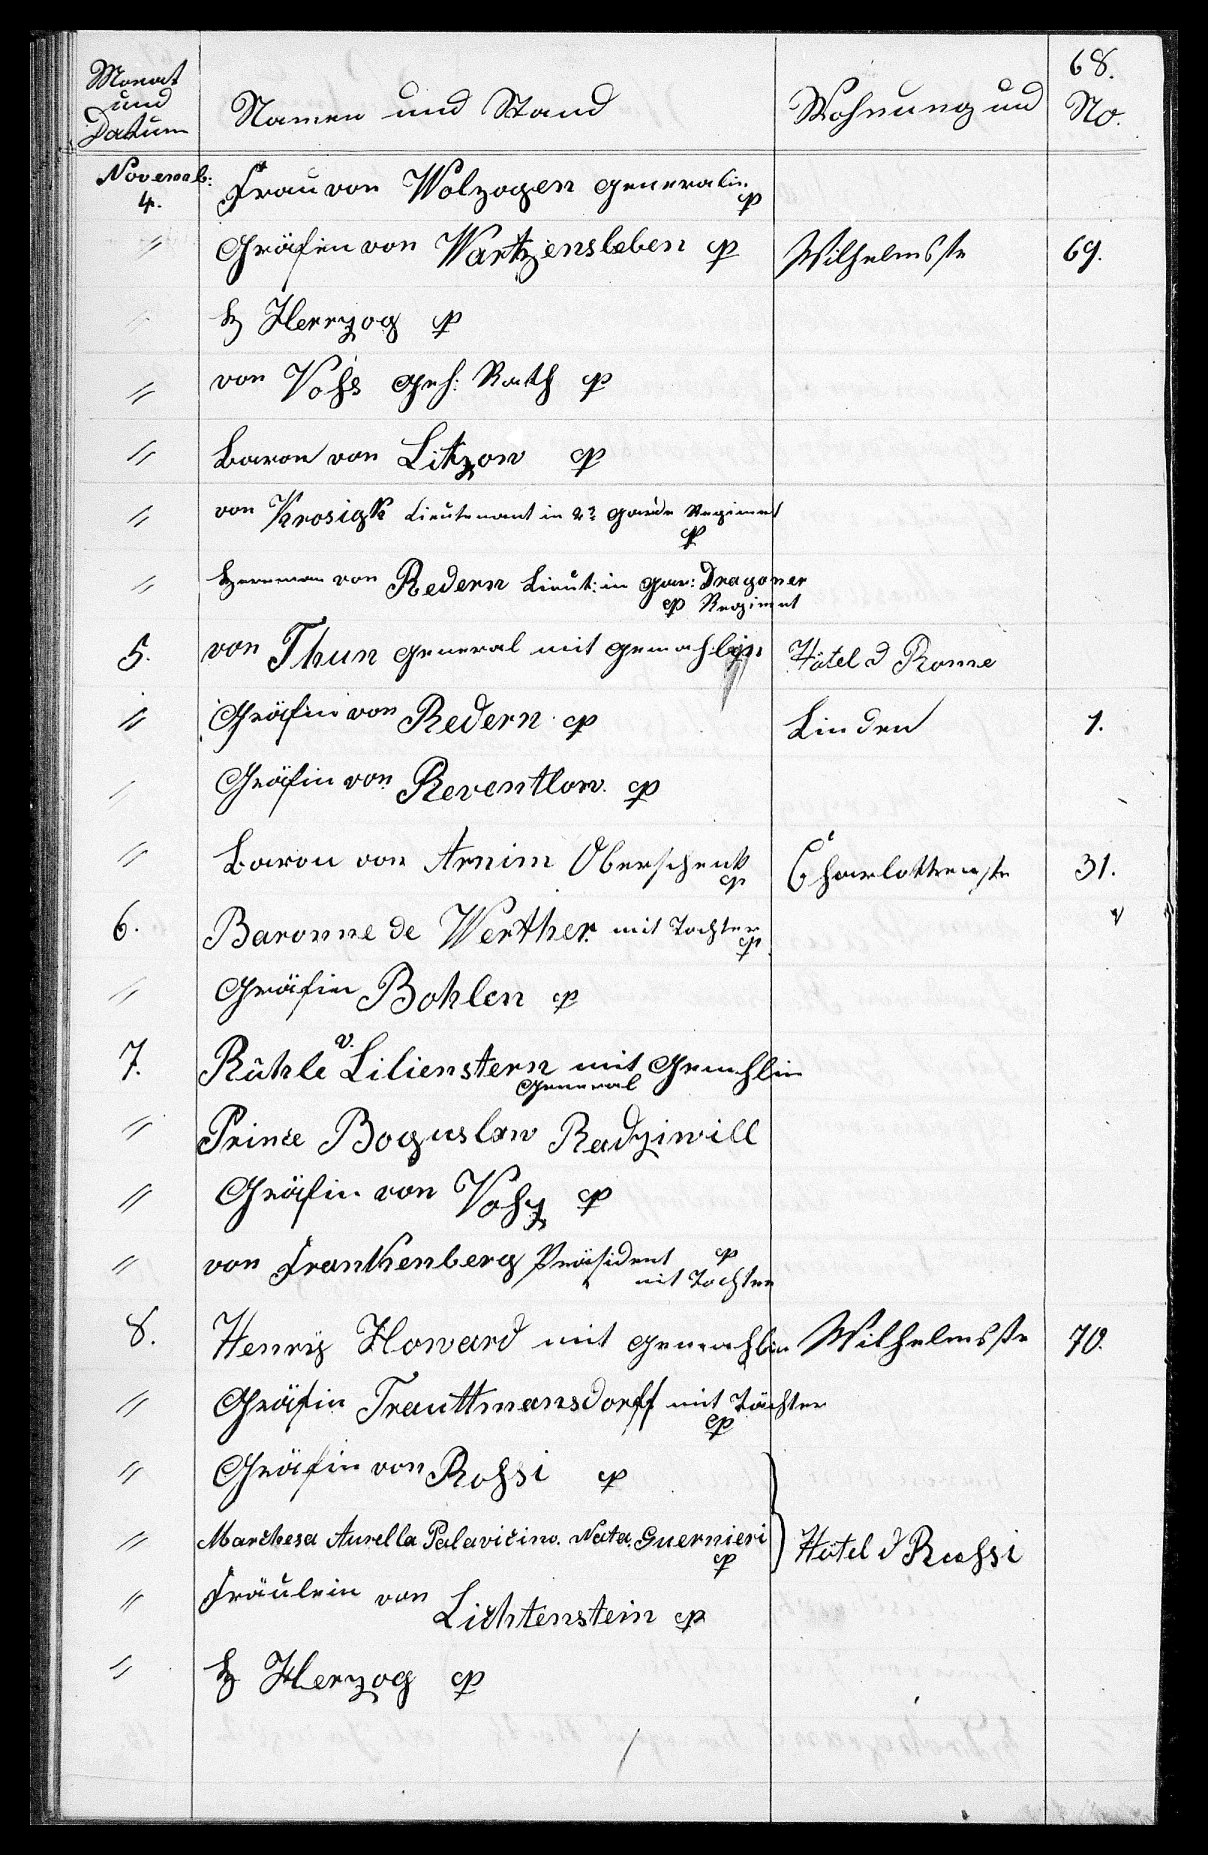 68.
Monat und Datum Namen und Stand Wohnung und No.
Novemb: 4. Frau von Wolzogen Generalin cp
" Gräfin von Wartzensleben cp Wilhelmsstr 69.
" H Herrzog cp
" von Vohs Geh: Rath cp
" Baron von Litzow cp
" von Krosigk Lieutenant in 2t Garde Regiment cp
" Herrman von Redern Lieut: in Gar: Dragoner
cp Regiment
5. von Thun General mit Gemahlin Hôtel d Rome
" Gräfin von Redern cp Linden 1.
" Gräfin von Reventlow. cp
" Baron von Arnim Oberschenk cp Charlottenstr 31.
6. Baronne de Werther. mit Tochter cp
" Gräfin Bohlen cp
7. Rühle v. Lilienstern mit Gemahlin
General
" Prince Boguslaw Radziwill
" Gräfin von Vohs cp
" von Frankenberg Präsident cp
mit Tochter
8. Henry Howard mit Gemahlin Wilhelmsstr 70.
" Gräfin Trauttmansdorff mit Töchter
cp
" Gräfin von Rohsi cp
" Marchesa Aurella Palavicino. Nata. Guernieri cp Hôtel d Ruhsi
" Fräulein von Lichtenstein cp
" H Herzog cp